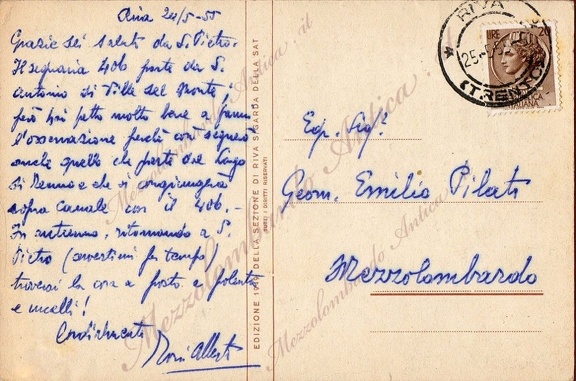 Riva 24/5-55
Grazie dei saluti da S. Pietro.
Il segnavia 406 parte da S.
Antonio di Ville del Monte;
però hai fatto molto bene a farmi
l'osservazione perchè così segnerò
anche quello che parte dal Lago
di Tenno e che si congiungerà
sopra Canale con il 406.-
In autunno, ritornando a S.
Pietro (avvertimi per tempo)
troverai la cosa a posto e polenta
e uccelli!
Cordialmente
Alberti
EDIZIONE DELLA SEZIONE DI RIVA S. GARDA DELLA SAT
(TUTTI I DIRITTI RISERVATI)
RIVA
25-5-55
(TRENTO)
LIRE 20
ITALIANA
Egr. Sigr.
Geom. Emilio Pilati
Mezzolombardo
Mezzolombardo Antica
Mezzolombardo Antica
Antica.it